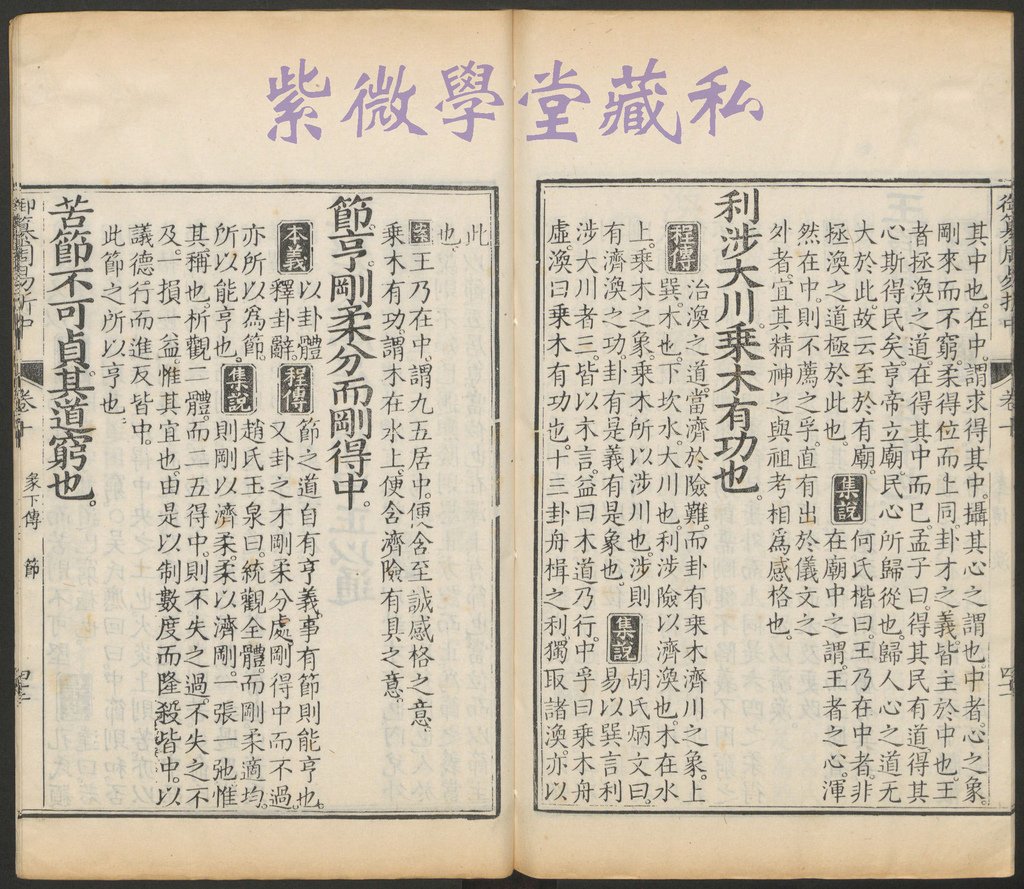 紫微學堂藏私
其中也在中謂求得其中攝其心之謂也中者心之象
剛來而不窮柔得位而上同卦才之義皆主於中也王
者拯渙之道在得其中而已孟子曰得其民有道得其
心斯得民矣亨帝立廟民心所歸從也歸人心之道无
大於此故云至於有廟
拯渙之道極於此也集説何氏楷曰王乃在中者非
在廟中之謂王者之心渾
然在中則不薦之孚直有出於儀文之
外者宜其精神之與祖考相為感格也
利涉大川乘木有功也
程傳治渙之道當濟於險難而卦有乘木濟川之象上
巽木也下坎水大川也利涉險以濟渙也木在水
上乘木之象乘木所以涉川也涉則
有濟渙之功卦有是義有是象也集説胡氏炳文曰
易以巽言利
涉大川者三皆以木言益曰木道乃行中孚曰乘木舟
虛渙曰乘木有功也十三卦舟楫之利獨取諸渙亦以
此
也
案王乃在中謂九五居中便含至誠感格之意
乘木有功謂木在水上便含濟險有具之意
節亨剛柔分而剛得中
本義以卦體
釋卦辭程傳節之道自有亨義事有節則能亨也
又卦之才剛柔分處剛得中而不過
亦所以為節
所以能亨也集説趙氏玉泉曰統觀全體而剛柔適均
則剛以濟柔柔以濟剛一張一弛惟
其稱也析觀二體而二五得中則不失之過不失之不
及一損一益惟其宜也由是以制數度而隆殺皆中以
議德行而進反皆中
此節之所以亨也
苦節不可貞其道窮也
卷十
彖下傳
節